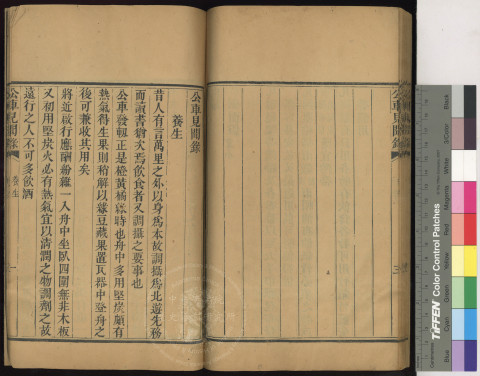 公車見聞錄
養生
昔人有言萬里之外以身爲本故調攝爲北遊先務
而讀書猶次焉飲食者又調攝之要事也
公車發軔正是橙黃橘綠時也舟中多用堅炭頗有
熱氣得生果則稍解以菉豆藏果置瓦器中登舟之
後可兼收其用矣
將近啟行應酬紛雜一入舟中坐臥四圍無非木板
又初用堅炭火必有熱氣宜以清潤之物調劑之故
遠行之人不可多飲酒
公車見聞錄
養生
一
公車見聞錄
TIFFEN Color Control Patches
Blue
Cyan
Green
Yellow
Red
Magenta
White
3/Color
Black